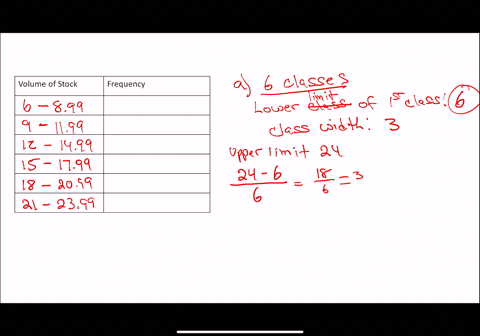 Volume of Stock Frequency
6 - 8.99
9 - 11.99
12 - 14.99
15 - 17.99
18 - 20.99
21 - 23.99
a) 6 classes
limit
Lower class of 1st class: 6
class width: 3
Upper limit 24
24 - 6 / 6 = 18 / 6 = 3